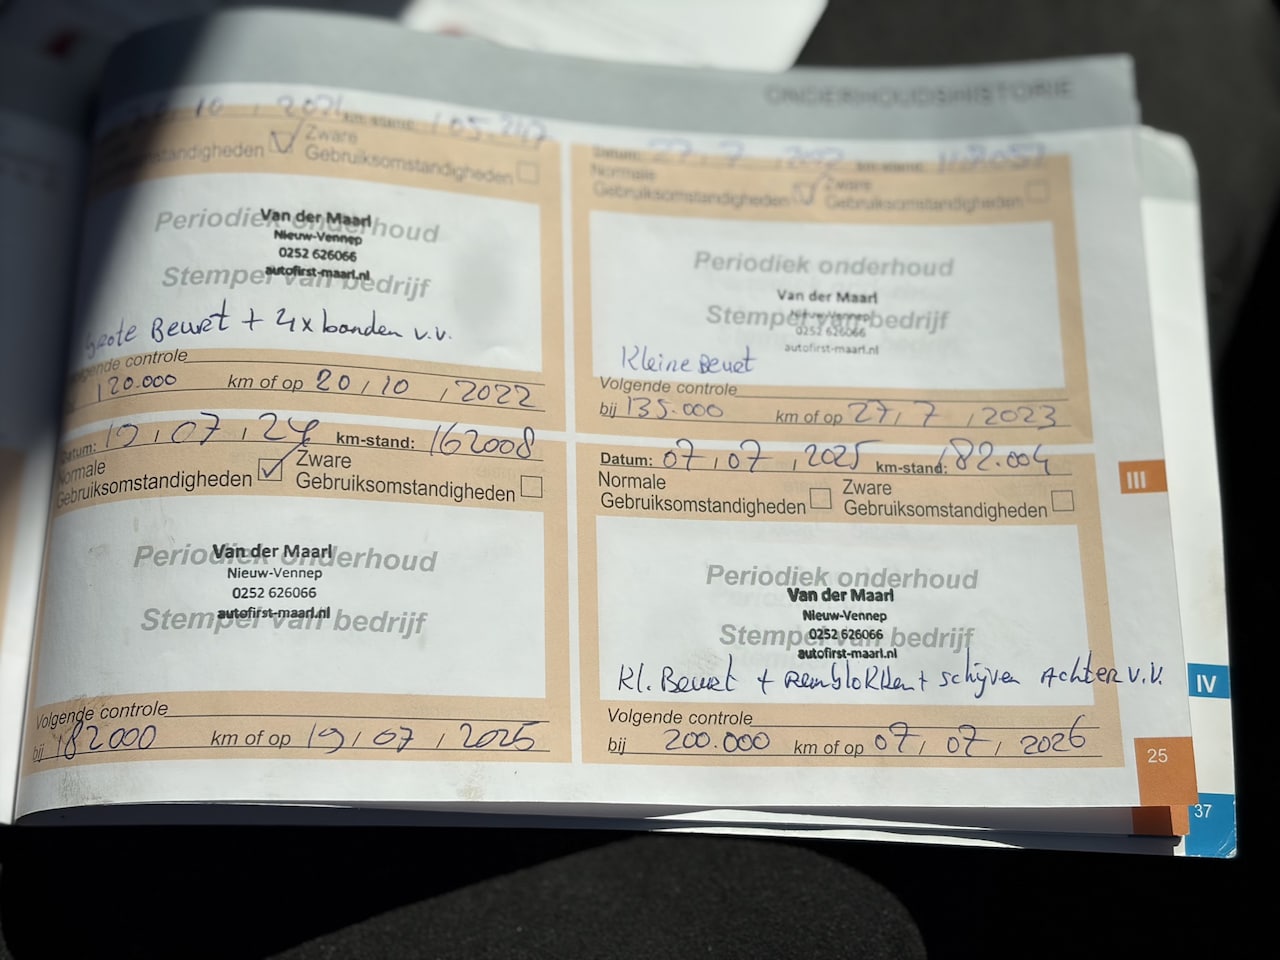 ONDERHOUDSHISTORIE
10, 2021 km-stand: 105.247
Gebruiksomstandigheden Zware Gebruiksomstandigheden
Periodiek onderhoud
Stempel van bedrijf
Van der Maarl
Nieuw-Vennep
0252 626066
autofirst-maarl.nl
Grote Beurt + 4x banden v.v.
Volgende controle
120.000 km of op 20, 10, 2022
Datum: 27, 7, km-stand:
Normale Gebruiksomstandigheden Zware Gebruiksomstandigheden
Periodiek onderhoud
Stempel van bedrijf
Van der Maarl
Nieuw-Vennep
0252 626066
autofirst-maarl.nl
Kleine Beurt
Volgende controle
bij 135.000 km of op 27, 7, 2023
Datum: 19, 07, 24 km-stand: 162008
Normale Gebruiksomstandigheden Zware Gebruiksomstandigheden
Periodiek onderhoud
Stempel van bedrijf
Van der Maarl
Nieuw-Vennep
0252 626066
autofirst-maarl.nl
Volgende controle
bij 182000 km of op 19, 07, 2025
Datum: 07, 07, 2025 km-stand: 182.004
Normale Gebruiksomstandigheden Zware Gebruiksomstandigheden
Periodiek onderhoud
Stempel van bedrijf
Van der Maarl
Nieuw-Vennep
0252 626066
autofirst-maarl.nl
Kl. Beurt + remblokken + schijven Achter v.v.
Volgende controle
bij 200.000 km of op 07, 07, 2026
III
IV
25
37